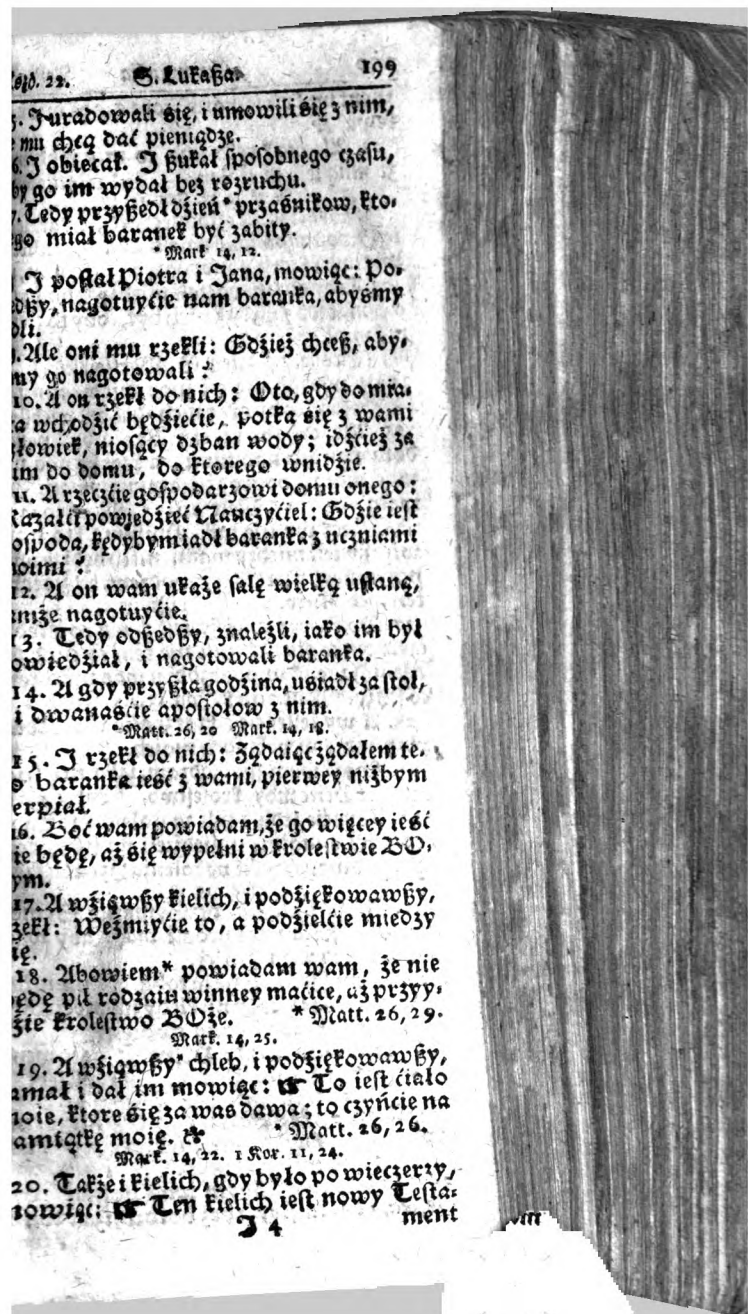 22. S. Lukaßa. 199
5. J uradowali się, i umowili się z nim,
mu chcą dać pieniądze.
6. J obiecał. J ßukał sposobnego czasu,
by go im wydał bez rozruchu.
7. Tedy przyßedł dźień * przaśnikow, kto-
go miał baranek być zabity.
* Mark 14, 12.
J posłał Piotra i Jana, mowiąc: Po-
dßy, nagotuyćie nam baranka, abyśmy
dli.
9. Ale oni mu rzekli: Gdźież chceß, aby-
my go nagotowali?
10. A on rzekł do nich: Oto, gdy do mia-
ta wchodźić będźiećie, potka się z wami
złowiek, niosący dzban wody; idźćież za
im do domu, do ktorego wnidźie.
11. A rzeczćie gospodarzowi domu onego:
Kazałći powjedźieć Nauczyćiel: Gdźie iest
ospoda, kędybym iadł baranka z uczniami
moimi?
12. A on wam ukaże salę wielką usłaną,
amże nagotuyćie.
13. Tedy odßedßy, znaleźli, iako im był
owiedźiał, i nagotowali baranka.
14. A gdy przyßła godźina, usiadł za stoł,
i dwanaśćie apostołow z nim.
* Matt. 26, 20 Mark. 14, 18.
15. J rzekł do nich: Żądaiąc żądałem te-
o baranka ieść z wami, pierwey niżbym
erpiał.
16. Boć wam powiadam, że go więcey ieść
ie będę, aż się wypełni w krolestwie BO-
ym.
17. A wźiąwßy kielich, i podźiękowawßy,
zekł: Weźmiyćie to, a podźielćie miedzy
ię.
18. Abowiem * powiadam wam, że nie
będę pił rodzaiu winney maćice, aż przyy-
źie krolestwo BOże. * Matt. 26, 29.
Mark. 14, 25.
19. A wźiąwßy * chleb, i podźiękowawßy,
amał i dał im mowiąc: ☛ To iest ćiało
moie, ktore się za was dawa; to czyńćie na
amiątkę moię. * Matt. 26, 26.
* Mark. 14, 22. 1 Kor. 11, 24.
20. Także i kielich, gdy było po wieczerzy,
mowiąc: ☛ Ten kielich iest nowy Testa-
J 4 ment